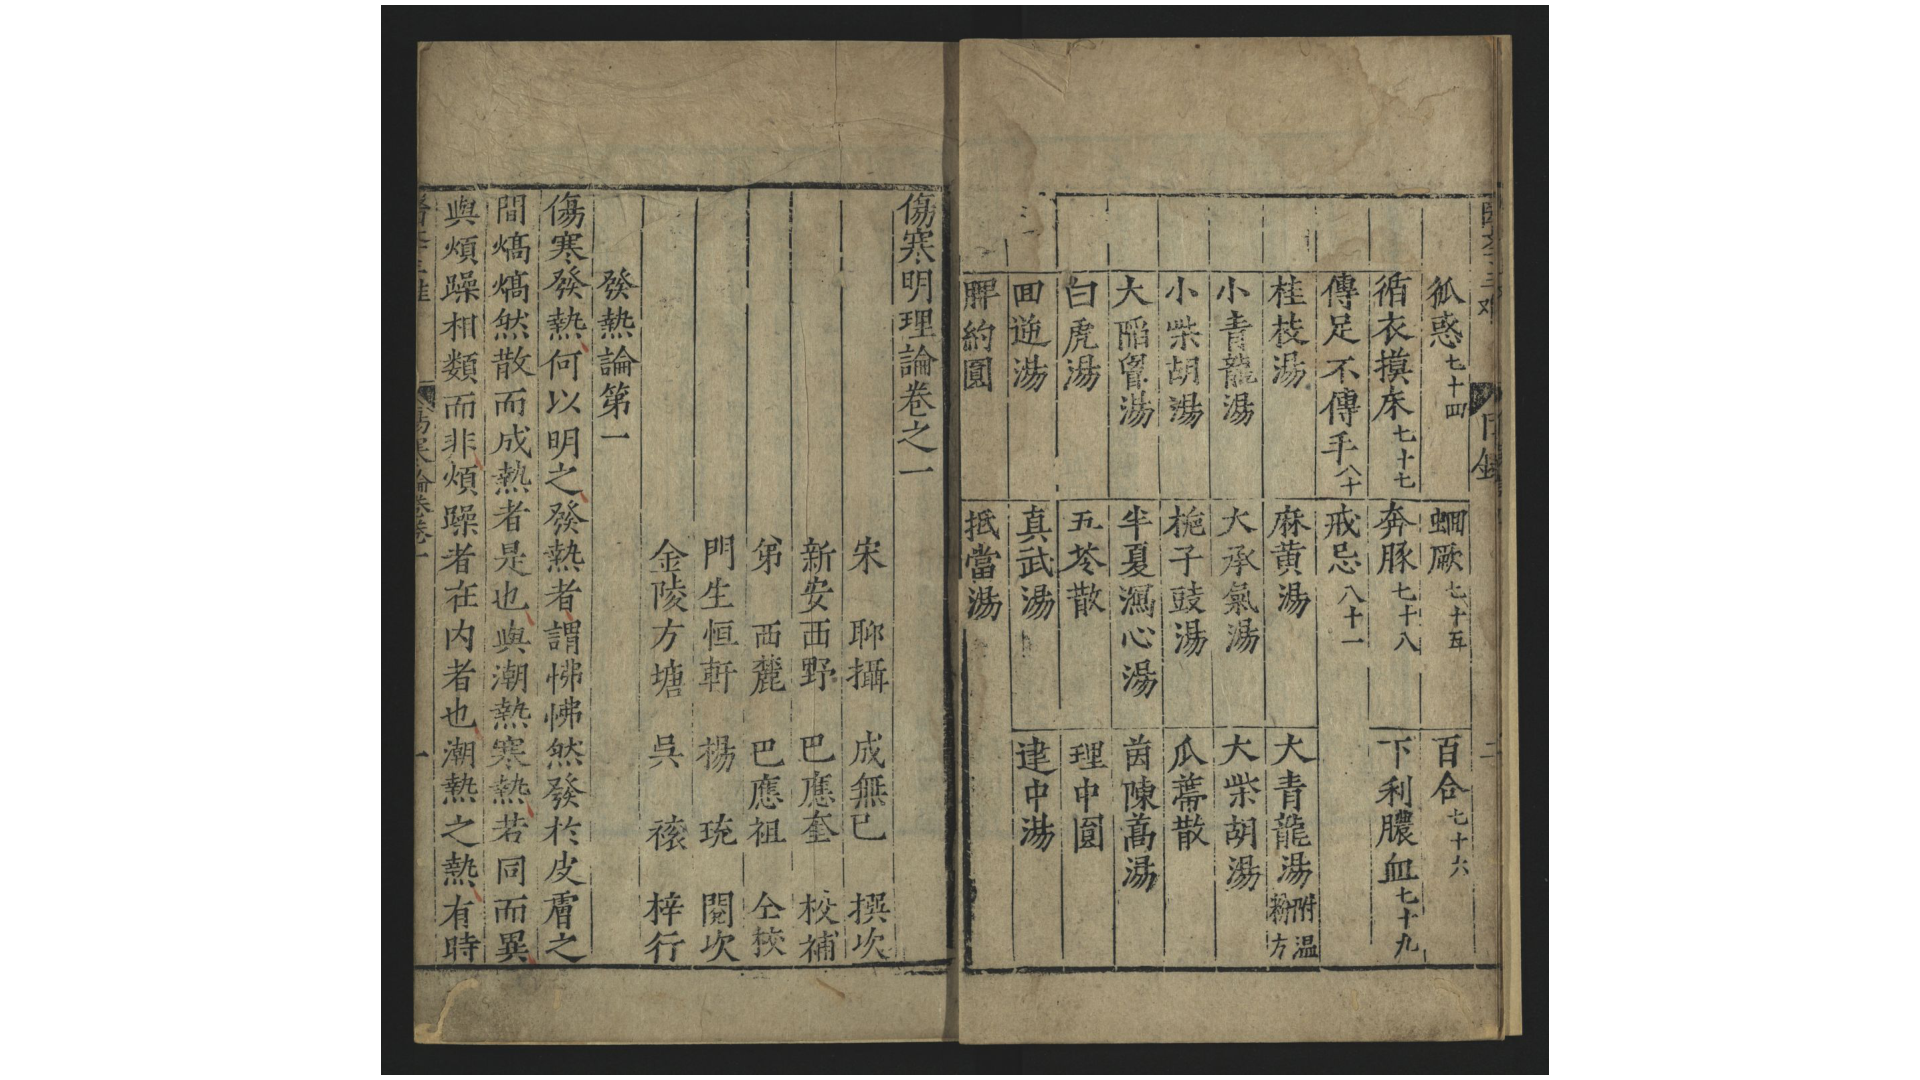 狐惑七十四　蛔厥七十五　百合七十六
循衣摸床七十七　奔豚七十八　下利膿血七十九
傳足不傳手八十　戒忌八十一
桂枝湯　麻黄湯　大青龍湯附温粉方
小青龍湯　大承氣湯　大柴胡湯
小柴胡湯　梔子豉湯　瓜蔕散
大陷胷湯　半夏瀉心湯　茵陳蒿湯
白虎湯　五苓散　理中圓
四逆湯　真武湯　建中湯
脾約圓　抵當湯
傷寒明理論卷之一
宋　聊攝　成無已　撰次
新安西野　巴應奎　校補
弟　西麓　巴應祖　仝校
門生恒軒　楊　珫　閱次
金陵方塘　吳　　梓行
發熱論第一
傷寒發熱何以明之發熱者謂怫怫然發於皮膚之
間熇熇然散而成熱者是也與潮熱寒熱若同而異
與煩躁相類而非煩躁者在内者也潮熱之熱有時